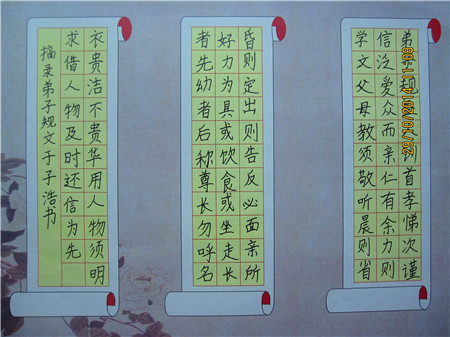 弟规人训首孝悌次谨
信泛爱众而亲仁有余力则
学文父母教须敬听晨则省
昏则定出则告反必面亲所
好力为具或饮食或坐走长
者先幼者后称尊长勿呼名
衣贵洁不贵华用人物须明
求借人物及时还信为先
摘录弟子规文于子浩书
29/10/2014 11:08